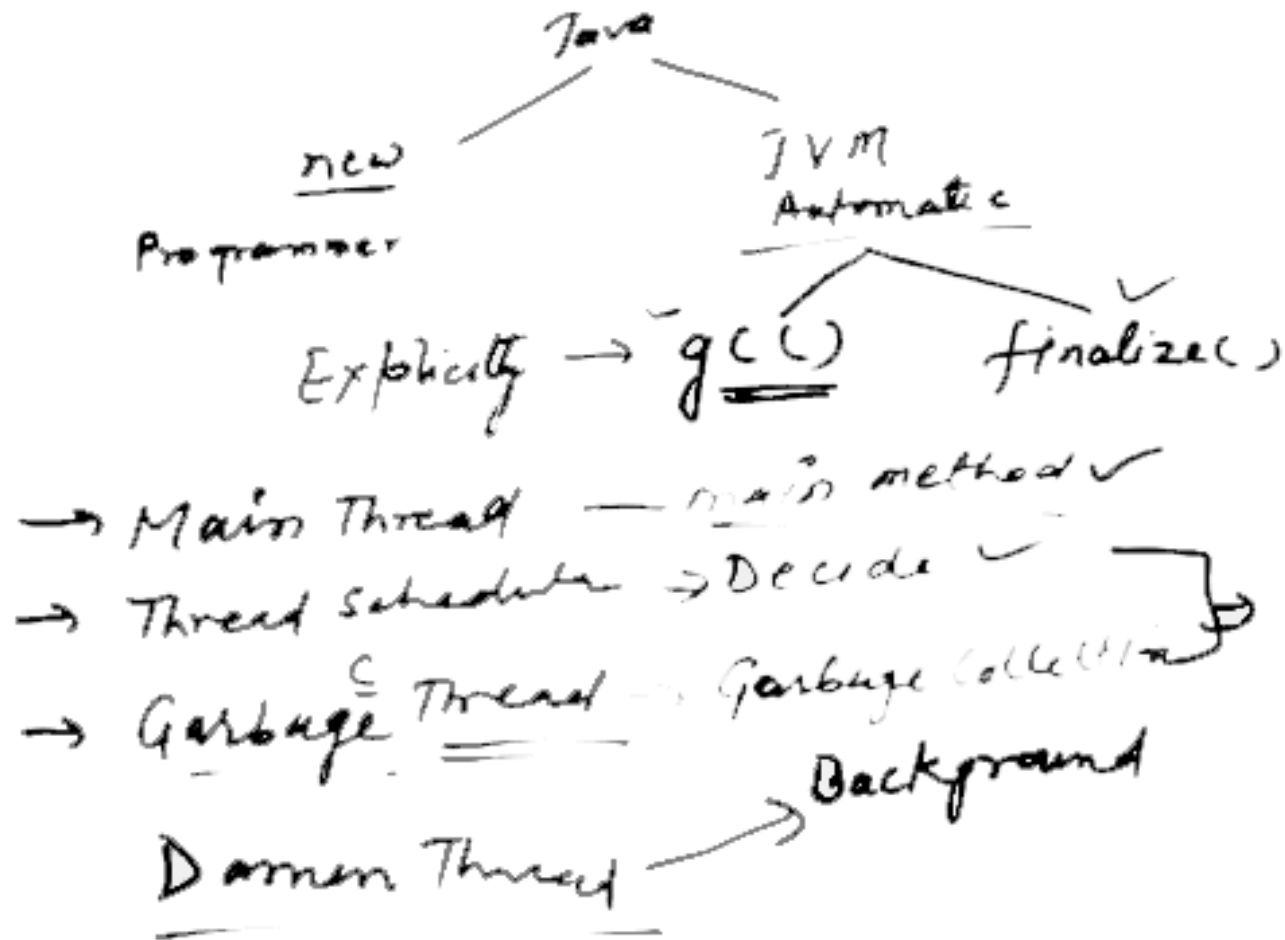 Java
new JVM
Programmer Automatic
Explicitly → gc() finalize()
→ Main Thread — main method ✓
→ Thread Scheduler → Decide ✓
C
→ Garbage Thread → Garbage Collection
Background
Damen Thread